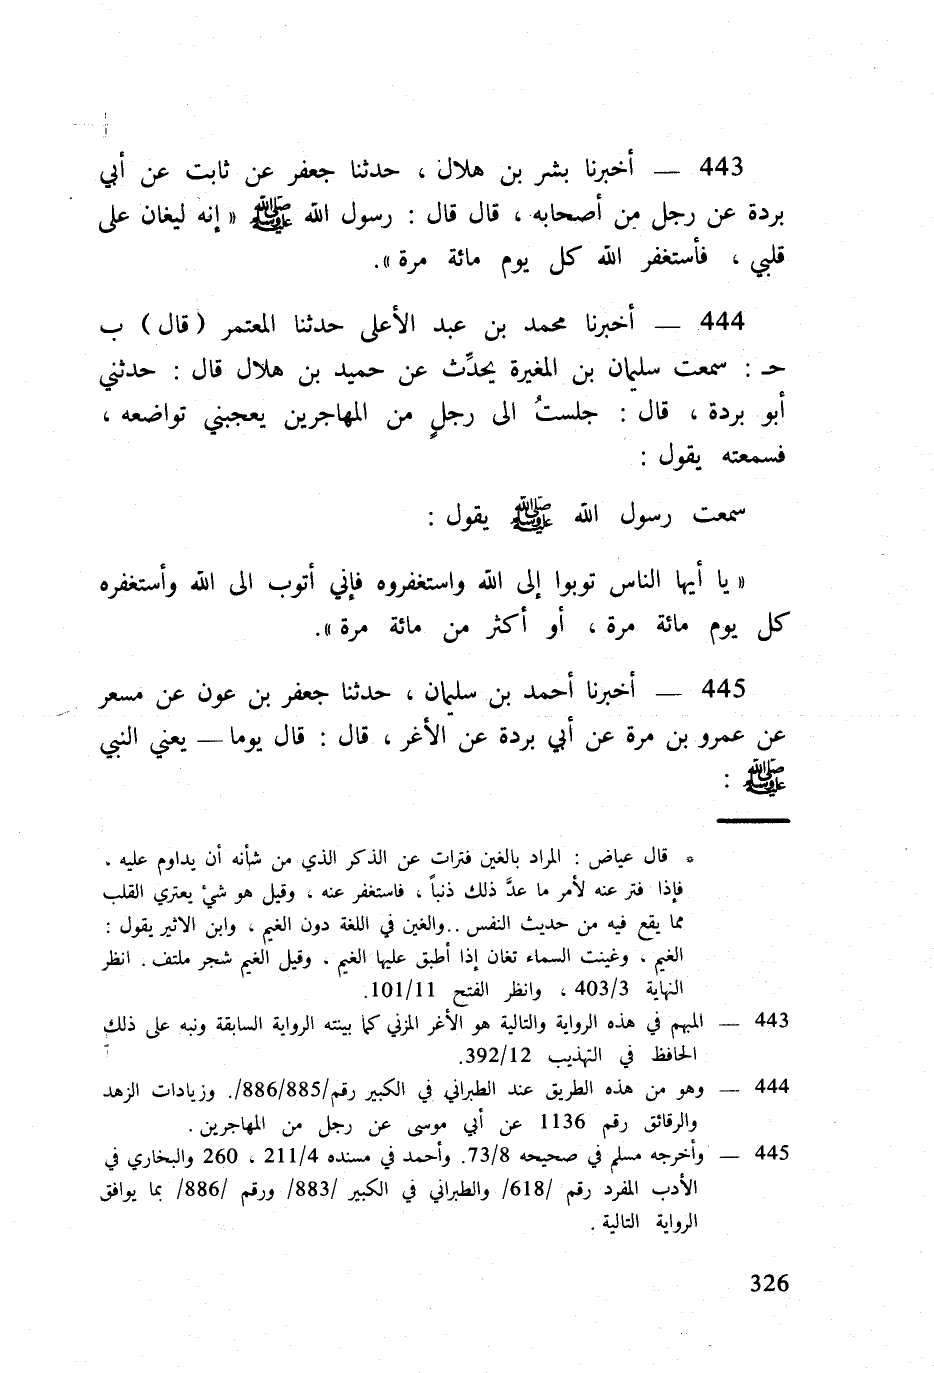 443 — أخبرنا بشر بن هلال ، حدثنا جعفر عن ثابت عن أبي
بردة عن رجل من أصحابه ، قال قال : رسول الله ﷺ « إنه ليغان على
قلبي ، فأستغفر الله كل يوم مائة مرة ».
444 — أخبرنا محمد بن عبد الأعلى حدثنا المعتمر ( قال ) ب
حـ : سمعت سليمان بن المغيرة يحدِّث عن حميد بن هلال قال : حدثني
أبو بردة ، قال : جلستُ الى رجلٍ من المهاجرين يعجبني تواضعه ،
فسمعته يقول :
سمعت رسول الله ﷺ يقول :
« يا أيها الناس توبوا إلى الله واستغفروه فإني أتوب الى الله وأستغفره
كل يوم مائة مرة ، أو أكثر من مائة مرة ».
445 — أخبرنا أحمد بن سليمان ، حدثنا جعفر بن عون عن مسعر
عن عمرو بن مرة عن أبي بردة عن الأغر ، قال : قال يوما — يعني النبي
ﷺ :
* قال عياض : المراد بالغين فترات عن الذكر الذي من شأنه أن يداوم عليه ،
فإذا فتر عنه لأمر ما عدَّ ذلك ذنباً ، فاستغفر عنه ، وقيل هو شيٴ يعتري القلب
مما يقع فيه من حديث النفس ..والغين في اللغة دون الغيم ، وابن الاثير يقول :
الغيم ، وغينت السماء تغان إذا أطبق عليها الغيم . وقيل الغيم شجر ملتف . انظر
النهاية 403/3 ، وانظر الفتح 101/11.
443 — المبهم في هذه الرواية والتالية هو الأغر المزني كما بينته الرواية السابقة ونبه على ذلك
الحافظ في التهذيب 392/12.
444 — وهو من هذه الطريق عند الطبراني في الكبير رقم/886/885/. وزيادات الزهد
والرقائق رقم 1136 عن أبي موسى عن رجل من المهاجرين .
445 — وأخرجه مسلم في صحيحه 73/8. وأحمد في مسنده 211/4 ، 260 والبخاري في
الأدب المفرد رقم /618/ والطبراني في الكبير /883/ ورقم /886/ بما يوافق
الرواية التالية .
326